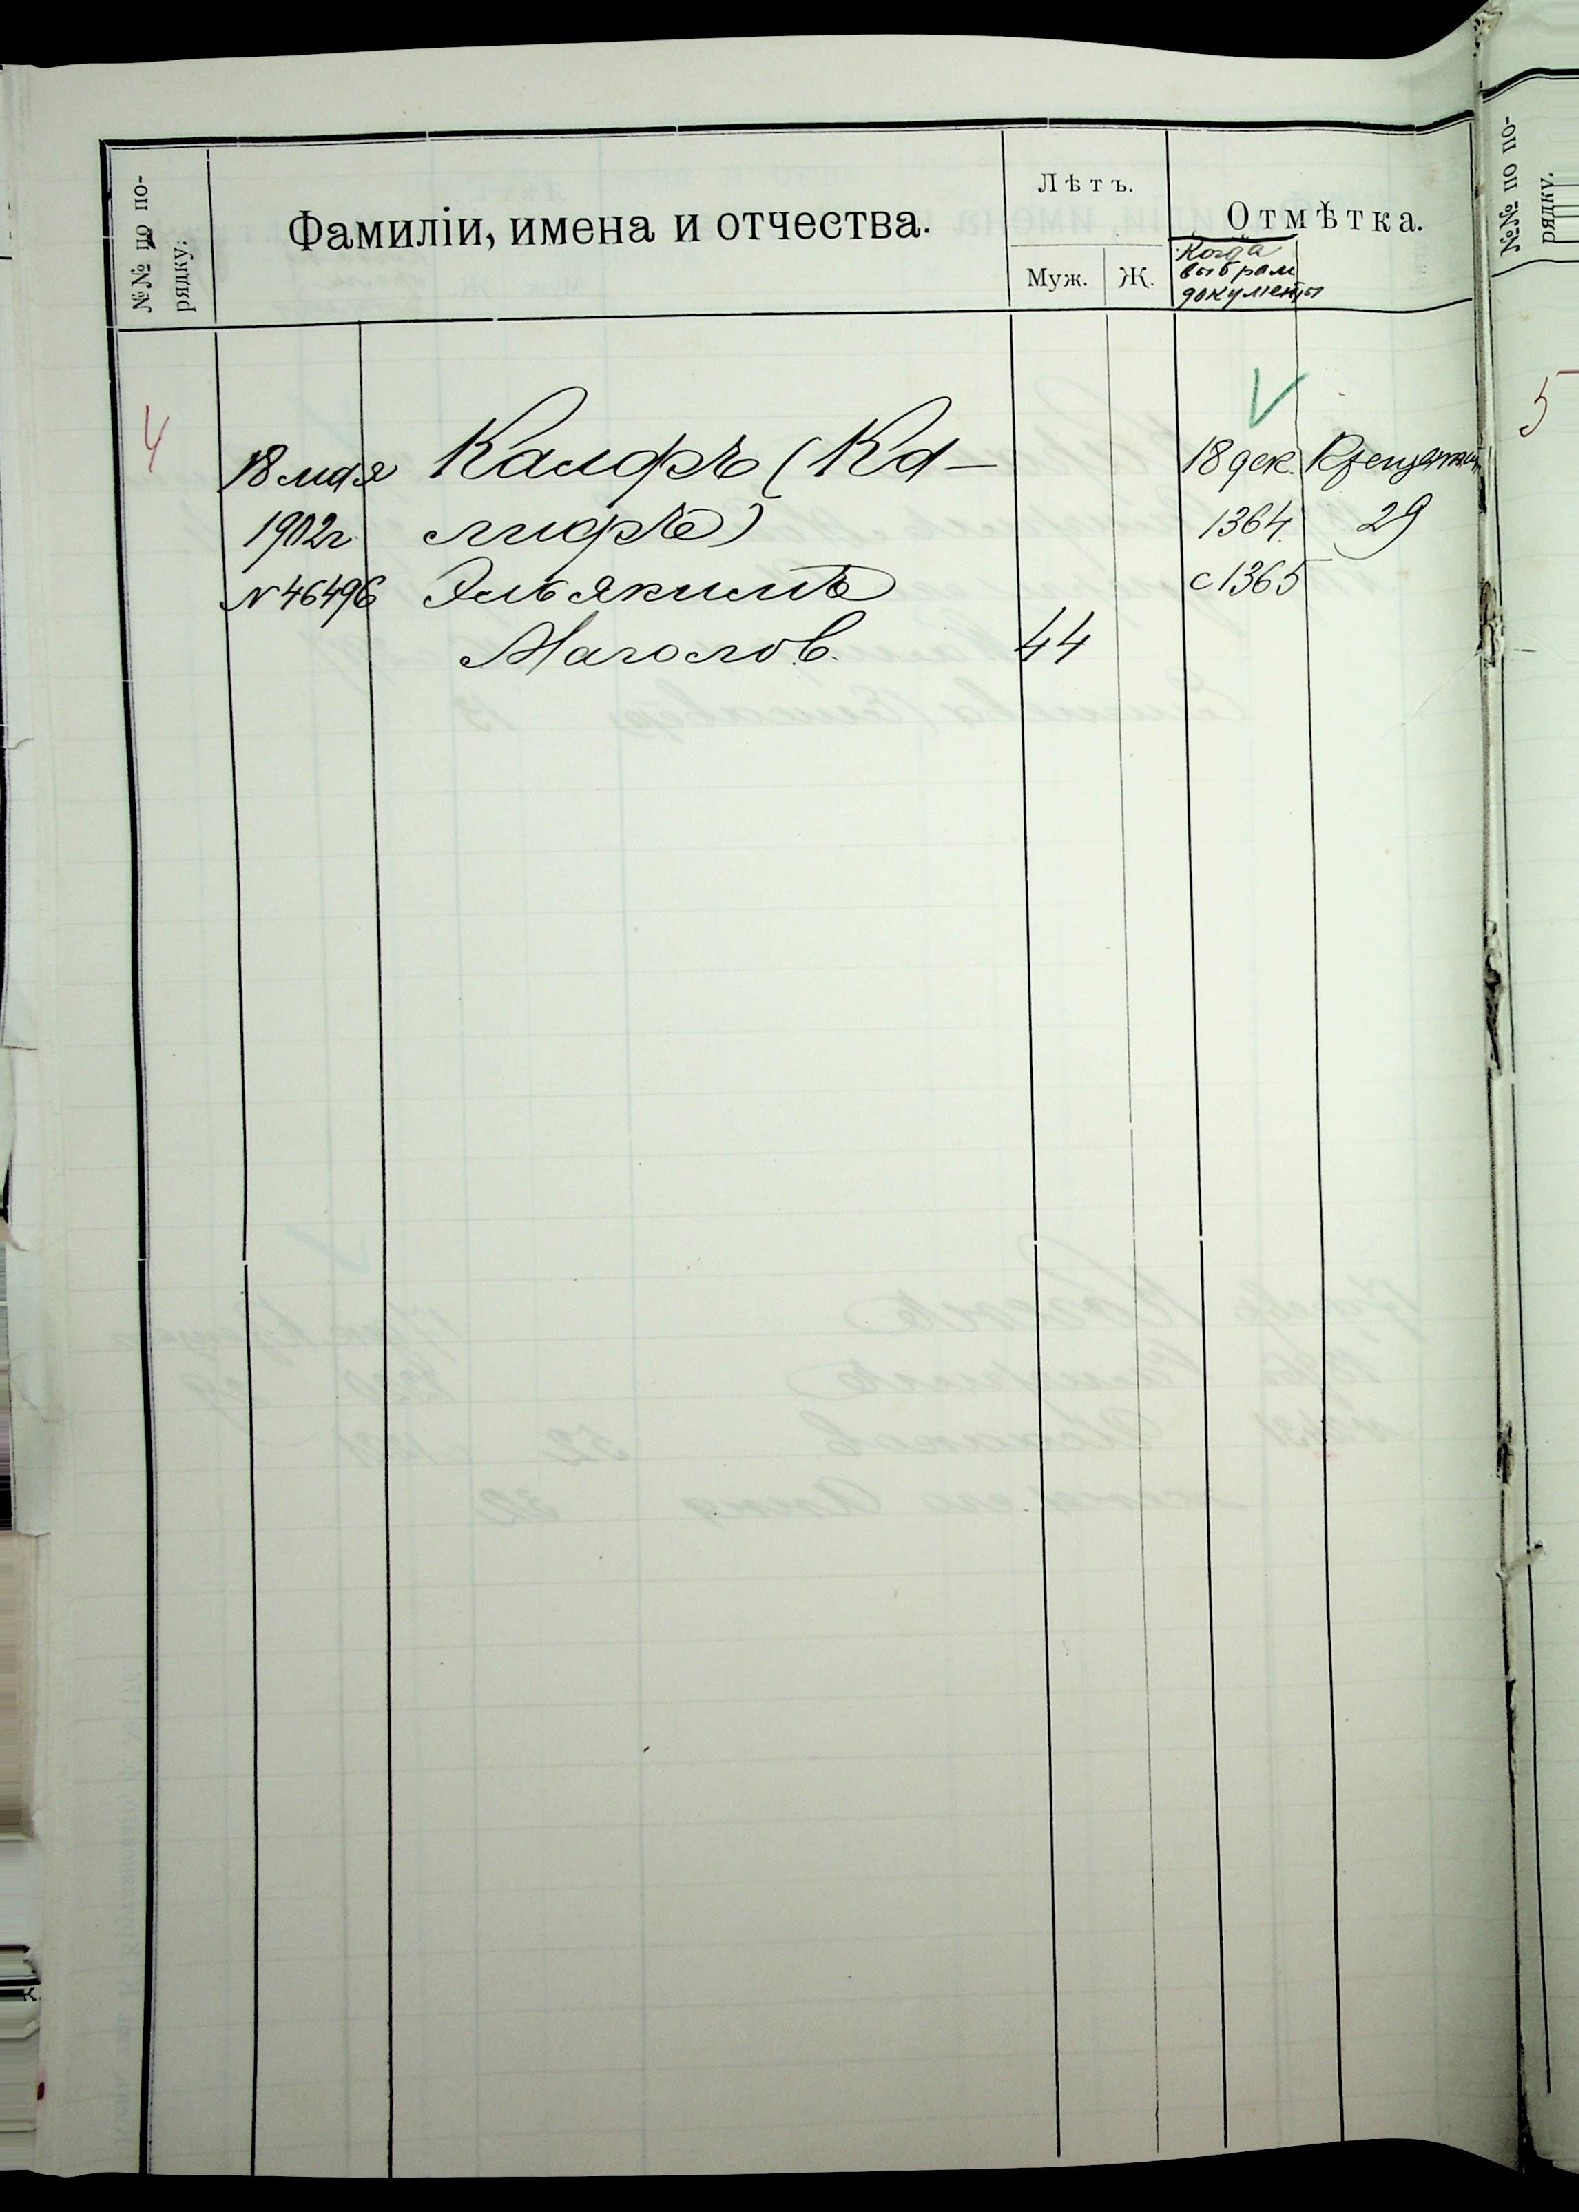 №№ по по-
рядку.
Фамиліи, имена и отчества.
Лѣтъ.
Муж.
Ж.
Отмѣтка.
Когда
выбрали
документы
4
18 мая
1902 г
N 46496
Калфъ (Ка-
лифъ)
Эльякимъ
Маголов.
44
18 дек.
1364
с 1365
Крещатик
29
№№ по по-
рядку.
5